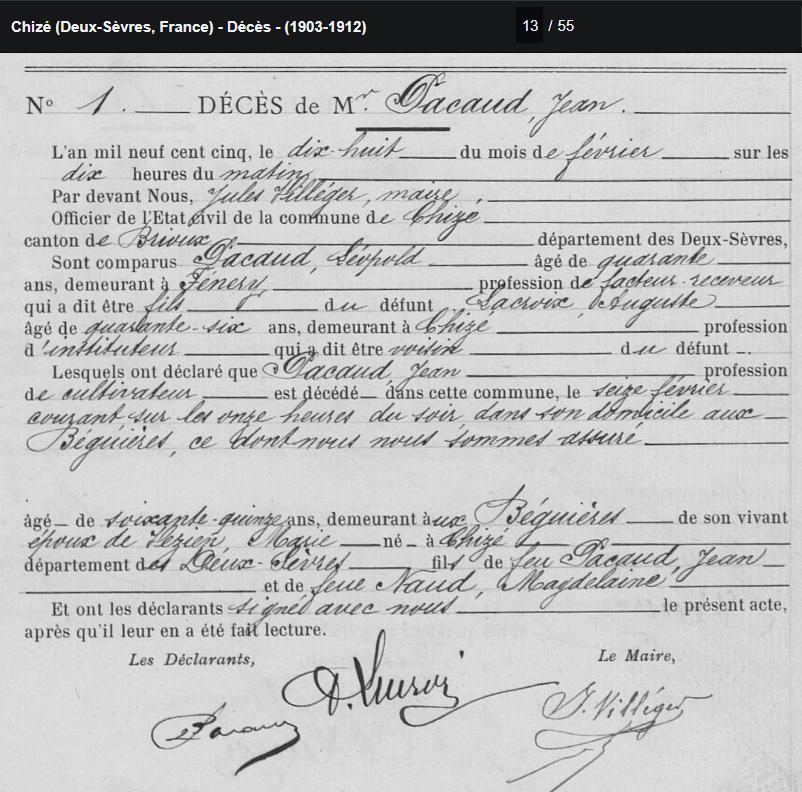 Chizé (Deux-Sèvres, France) - Décès - (1903-1912) 13 / 55
No 1. DÉCÈS de Mr. Pacaud, Jean.
L'an mil neuf cent cinq, le dix-huit du mois de février sur les
dix heures du matin,
Par devant Nous, Jules Villéger, maire,
Officier de l'Etat civil de la commune de Chizé
canton de Brioux département des Deux-Sèvres,
Sont comparus Pacaud, Léopold âgé de quarante
ans, demeurant à Fénery, profession de facteur-receveur
qui a dit être fils du défunt Lacroix, Auguste
âgé de quarante-six ans, demeurant à Chizé profession
d'instituteur qui a dit être voisin du défunt.
Lesquels ont déclaré que Pacaud, Jean profession
de cultivateur est décédé dans cette commune, le seize février
courant sur les onze heures du soir, dans son domicile aux
Béguières, ce dont nous nous sommes assuré
âgé de soixante-quinze ans, demeurant aux Béguières de son vivant
époux de Vezien, Marie né à Chizé
département des Deux-Sèvres fils de feu Pacaud, Jean
et de feue Naud, Magdelaine
Et ont les déclarants signé avec nous le présent acte,
après qu'il leur en a été fait lecture.
Les Déclarants, Le Maire,
Pacaud J. Villéger